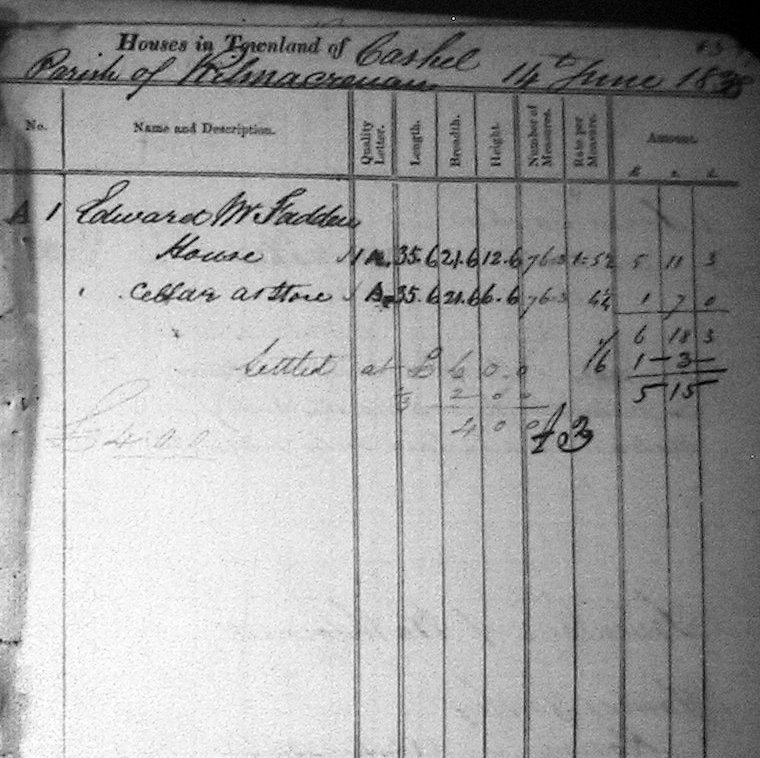 Houses in Townland of Cashel 63
Parish of Kilmacrenan 14th June 1838
No. Name and Description. Quality Letter. Length. Breadth. Height. Number of Measures. Rate per Measure. Amount.
£ s. d.
A 1 Edward McFadden
House 1A. 35.6 21.6 12.6 76.3 1=5½ 5 11 3
cellar as store A 35.6 21.6 6.6 76.3 4¼ 1 7 0
6 18 3
1/6 1 3
5 15
Settled at £ 6 0.0
⅓ 2 0 0
4 0 0
£4.0.0